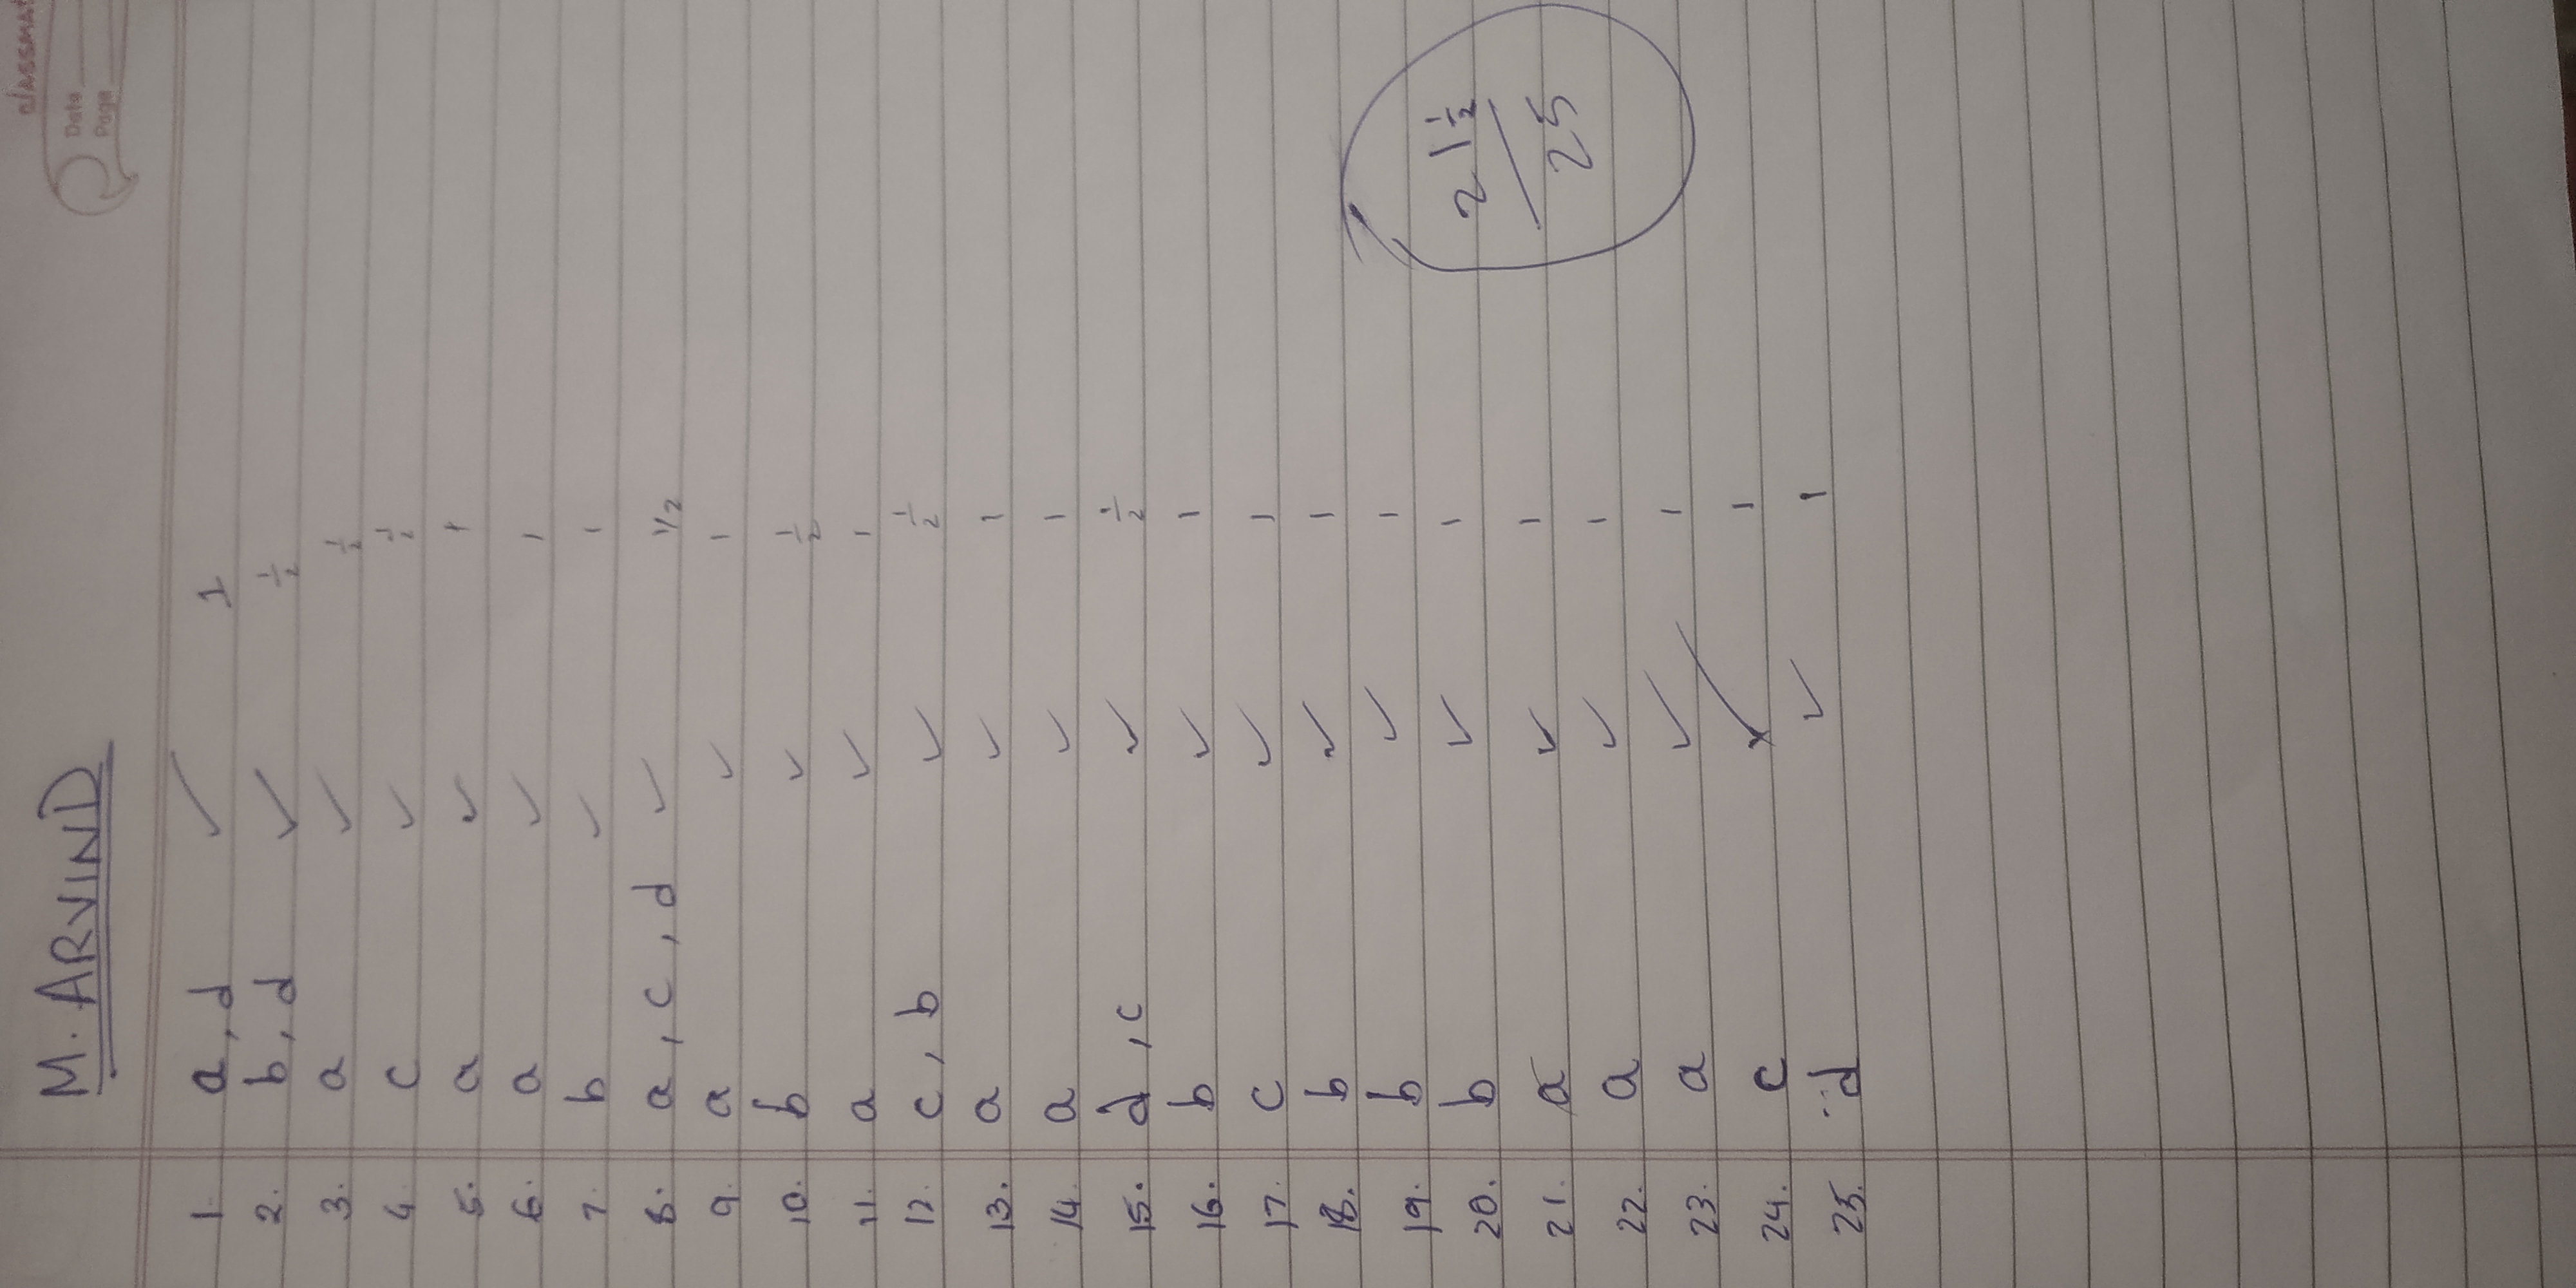 classmat
Date
Page
M. ARVIND
1. a, d ✓ 1
2. b, d ✓ 1/2
3. a ✓ 1/2
4 c ✓ 1/2
5. a ✓ 1
6. a ✓ 1
7. b ✓ 1
8. a, c, d ✓ 1/2
9. a ✓ 1
10. b ✓ 1/2
11. a ✓ 1
12. c, b ✓ 1/2
13. a ✓ 1
14. a ✓ 1
15. d, c ✓ 1/2
16. b ✓ 1
17. c ✓ 1
18. b ✓ 1
19. b ✓ 1
20. b ✓ 1
21. a ✓ 1
22. a ✓ 1
23. a ✓ 1
24. c ✓ 1
25. d ✓ 1
21 1/2
25